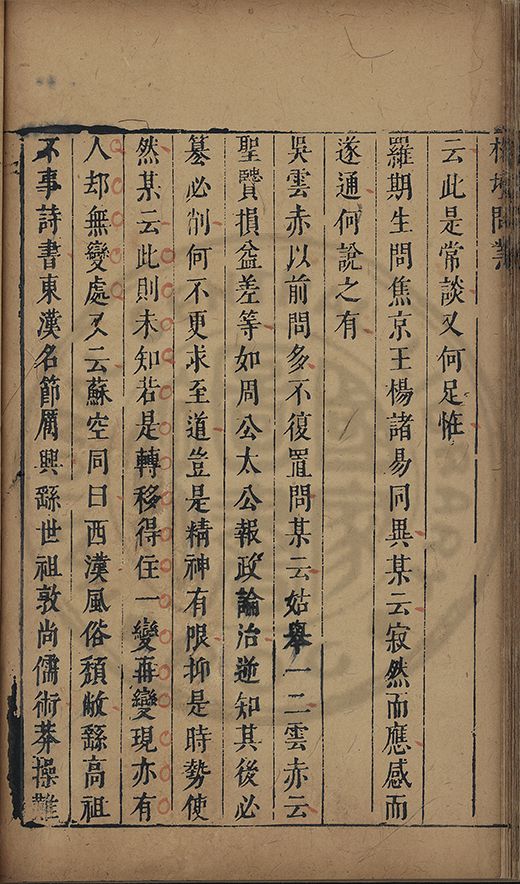 榕壇問業
云此是常談又何足恠
羅期生問焦京王楊諸易同異某云寂然而應感而
遂通何說之有
吳雲赤以前問多不復置問某云姑舉一二雲赤云
聖賢損益差等如周公太公報政論治逆知其後必
簒必削何不更求至道豈是精神有限抑是時勢使
然某云此則未知若是轉移得住一變再變現亦有
人却無變處又云蘇空同曰西漢風俗頹敝繇高祖
不事詩書東漢名節厲興繇世祖敦尚儒術莽操雖